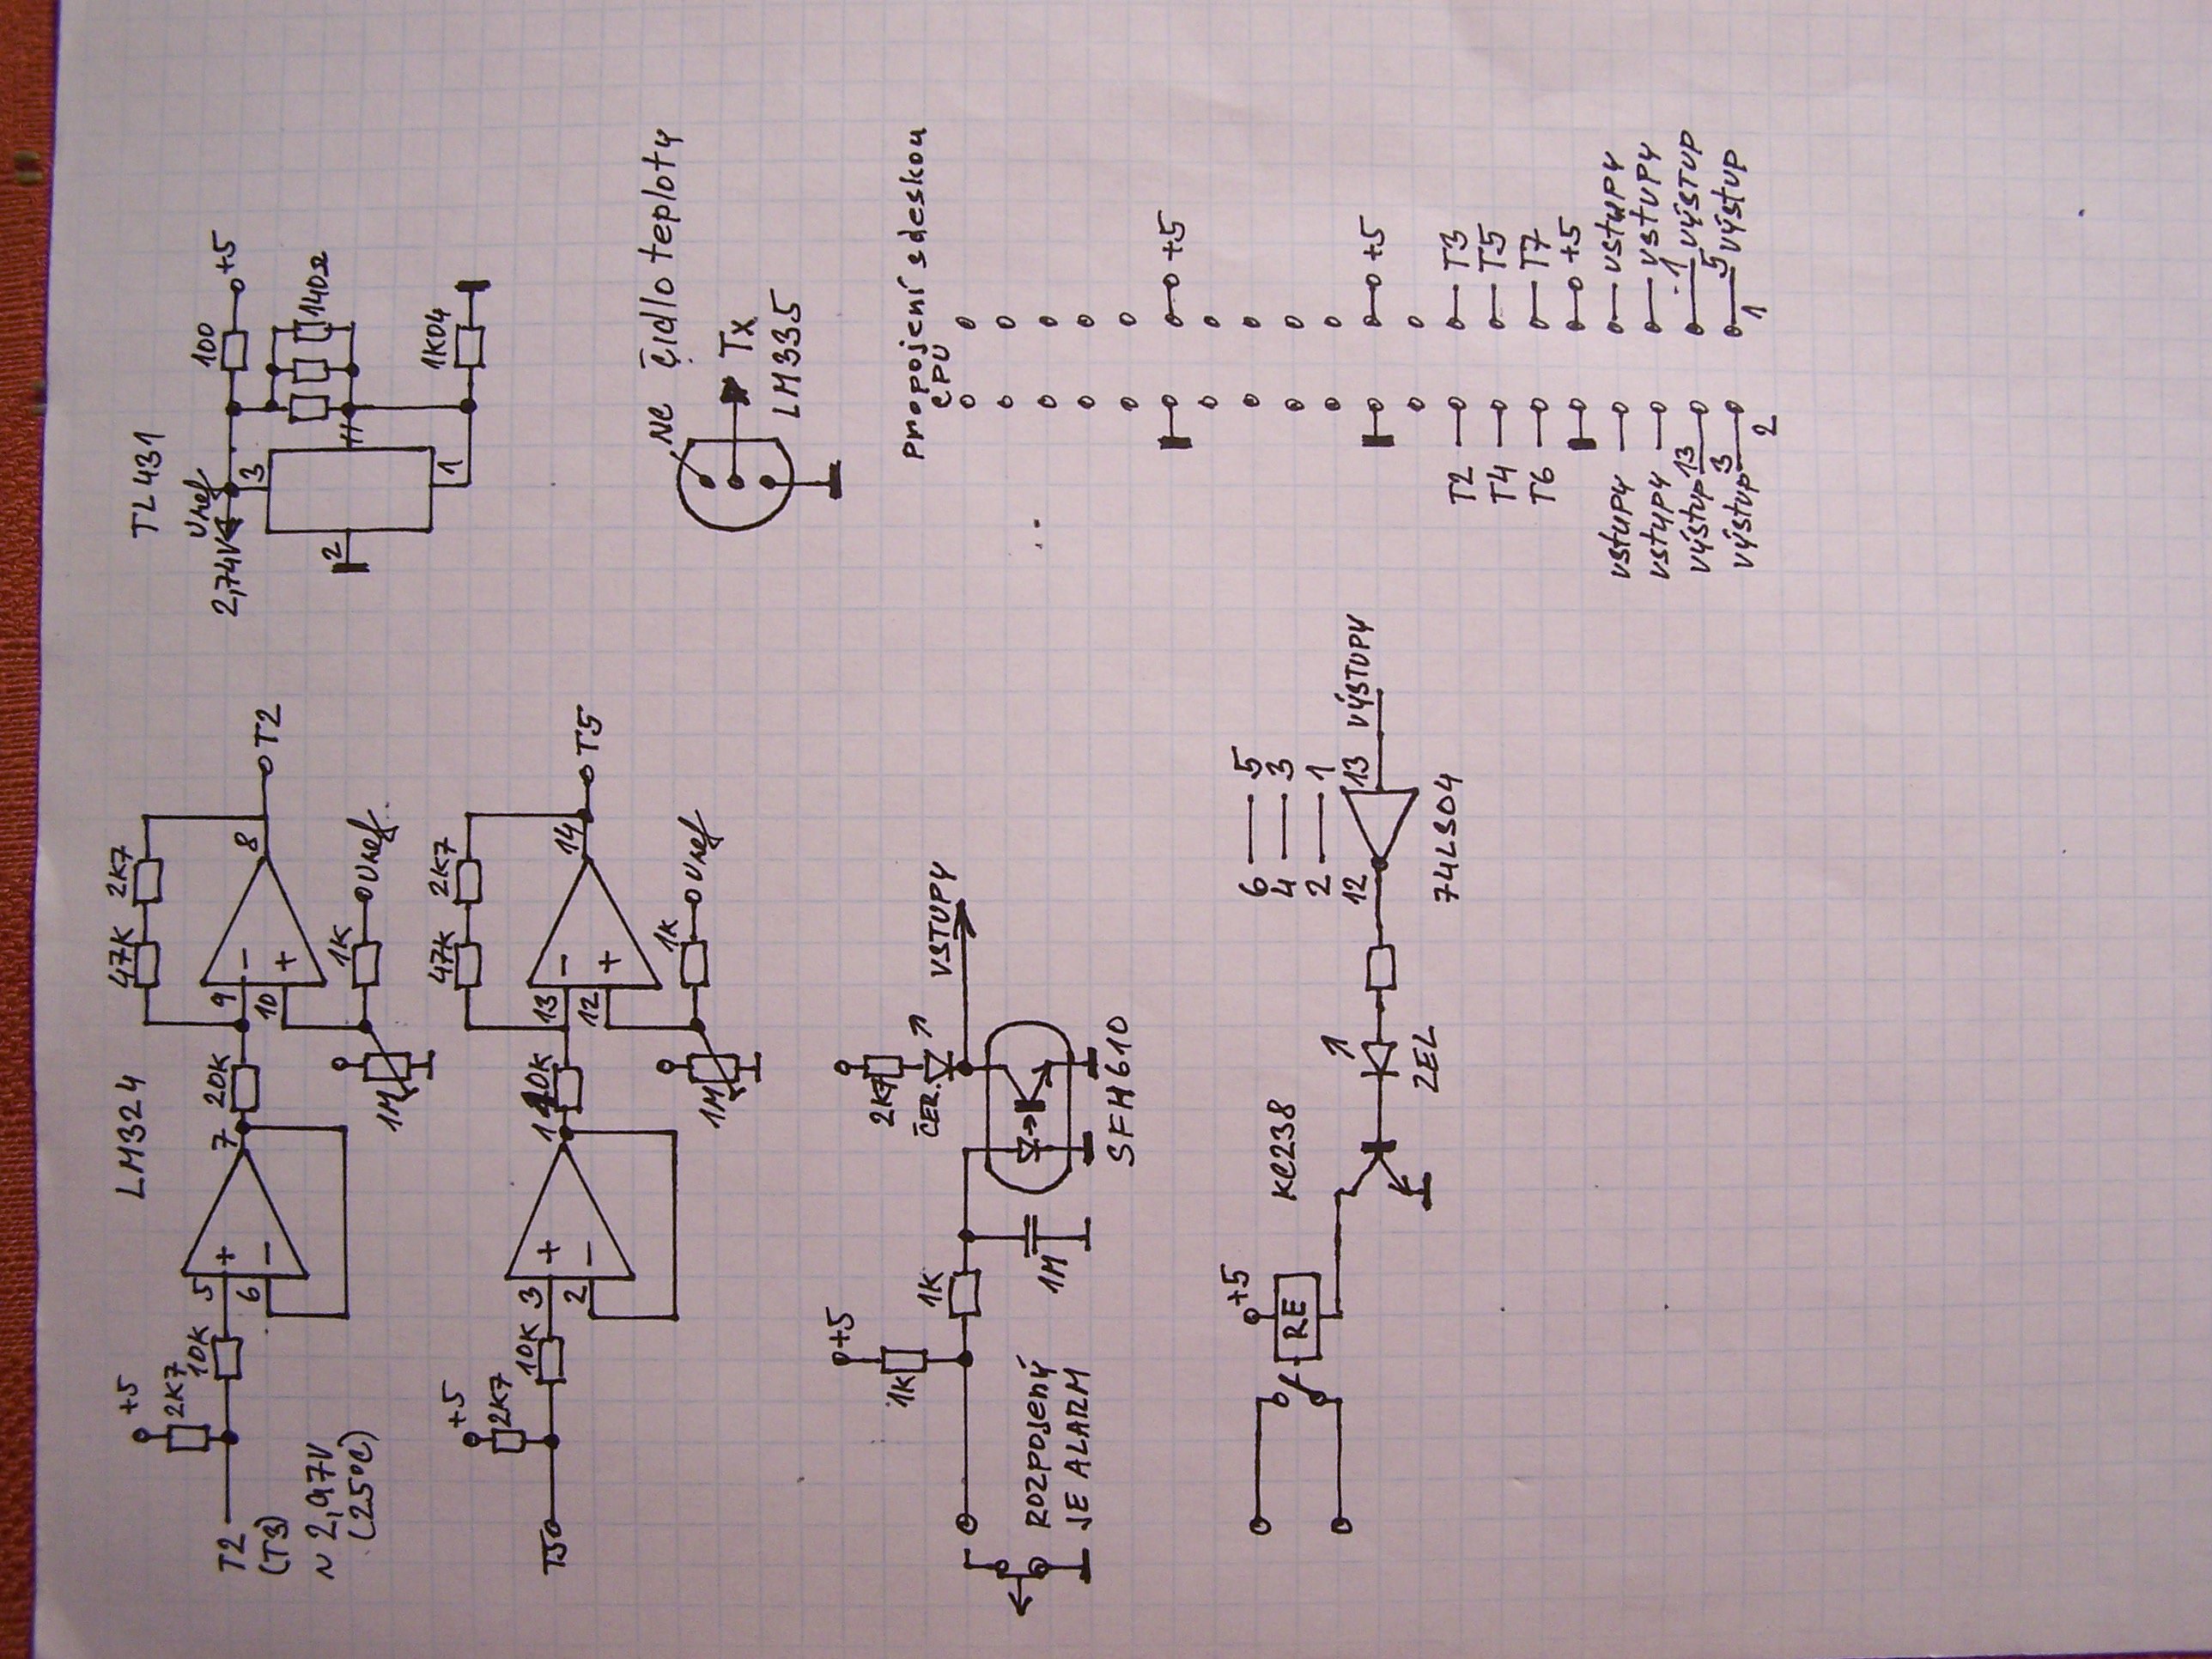 LM324
+5
2K7
10K
5
6
7
20K
47K
2K7
9
10
8
T2
1K
Uref
1M
T2
(T3)
~ 2,97V
(25°C)
+5
2K7
10K
3
2
1
47K
2K7
13
12
14
T5
1K
Uref
1M
T5
TL431
Uref
2,74V
3
2
1
100
+5
140Ω
1K04
NC
čidlo teploty
Tx
LM335
+5
1K
1K
1M
2K7
ČER.
VSTUPY
SFH610
ROZPOJENÝ
JE ALARM
+5
RE
KC238
ZEL
6 — 5
4 — 3
2 — 1
12
13
VÝSTUPY
74LS04
Propojení s deskou
CPU
+5
+5
T2
T3
T4
T5
T6
T7
+5
vstupy
vstupy
vstupy
vstupy
výstup 13
1 výstup
výstup 3
5 výstup
2
1